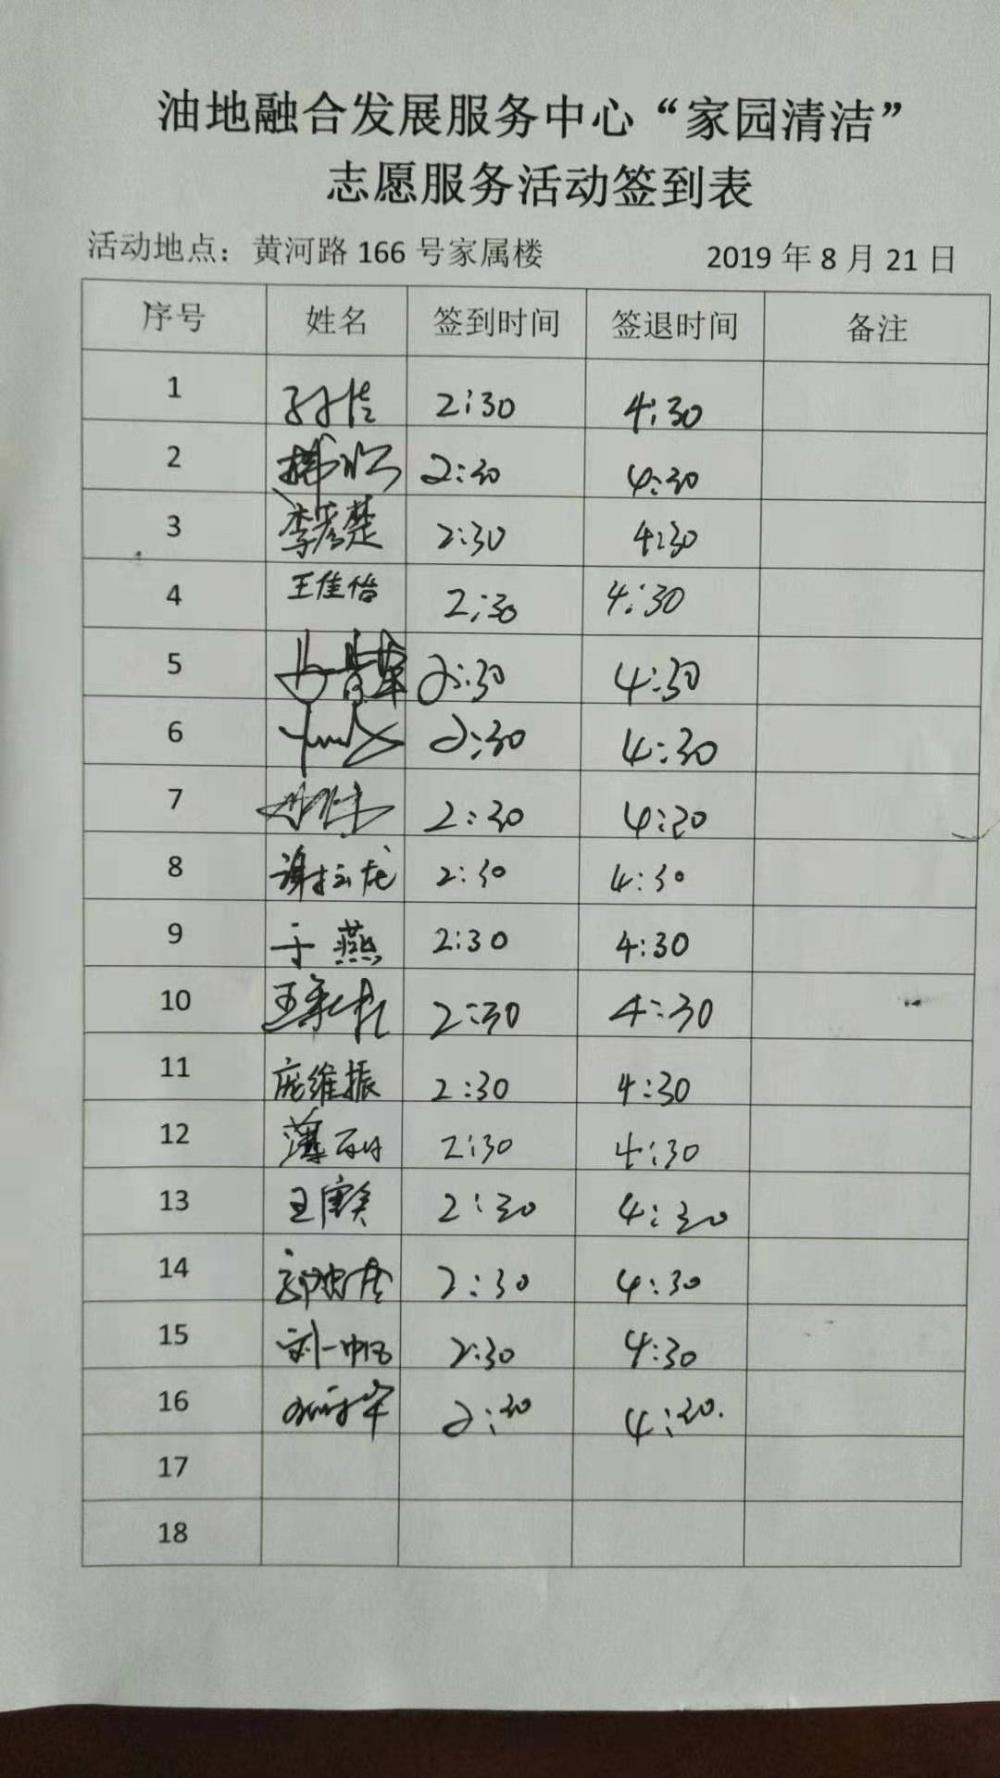 油地融合发展服务中心“家园清洁”
志愿服务活动签到表
活动地点：黄河路 166 号家属楼 2019 年 8 月 21 日
序号 姓名 签到时间 签退时间 备注
1 孙佳 2:30 4:30
2 2:30 4:30
3 李彦楚 2:30 4:30
4 王佳怡 2:30 4:30
5 2:30 4:30
6 2:30 4:30
7 2:30 4:20
8 谢云龙 2:30 4:30
9 于燕 2:30 4:30
10 2:30 4:30
11 庞维振 2:30 4:30
12 薄 2:30 4:30
13 王 2:30 4:30
14 2:30 4:30
15 刘一帆 2:30 4:30
16 2:30 4:30.
17
18